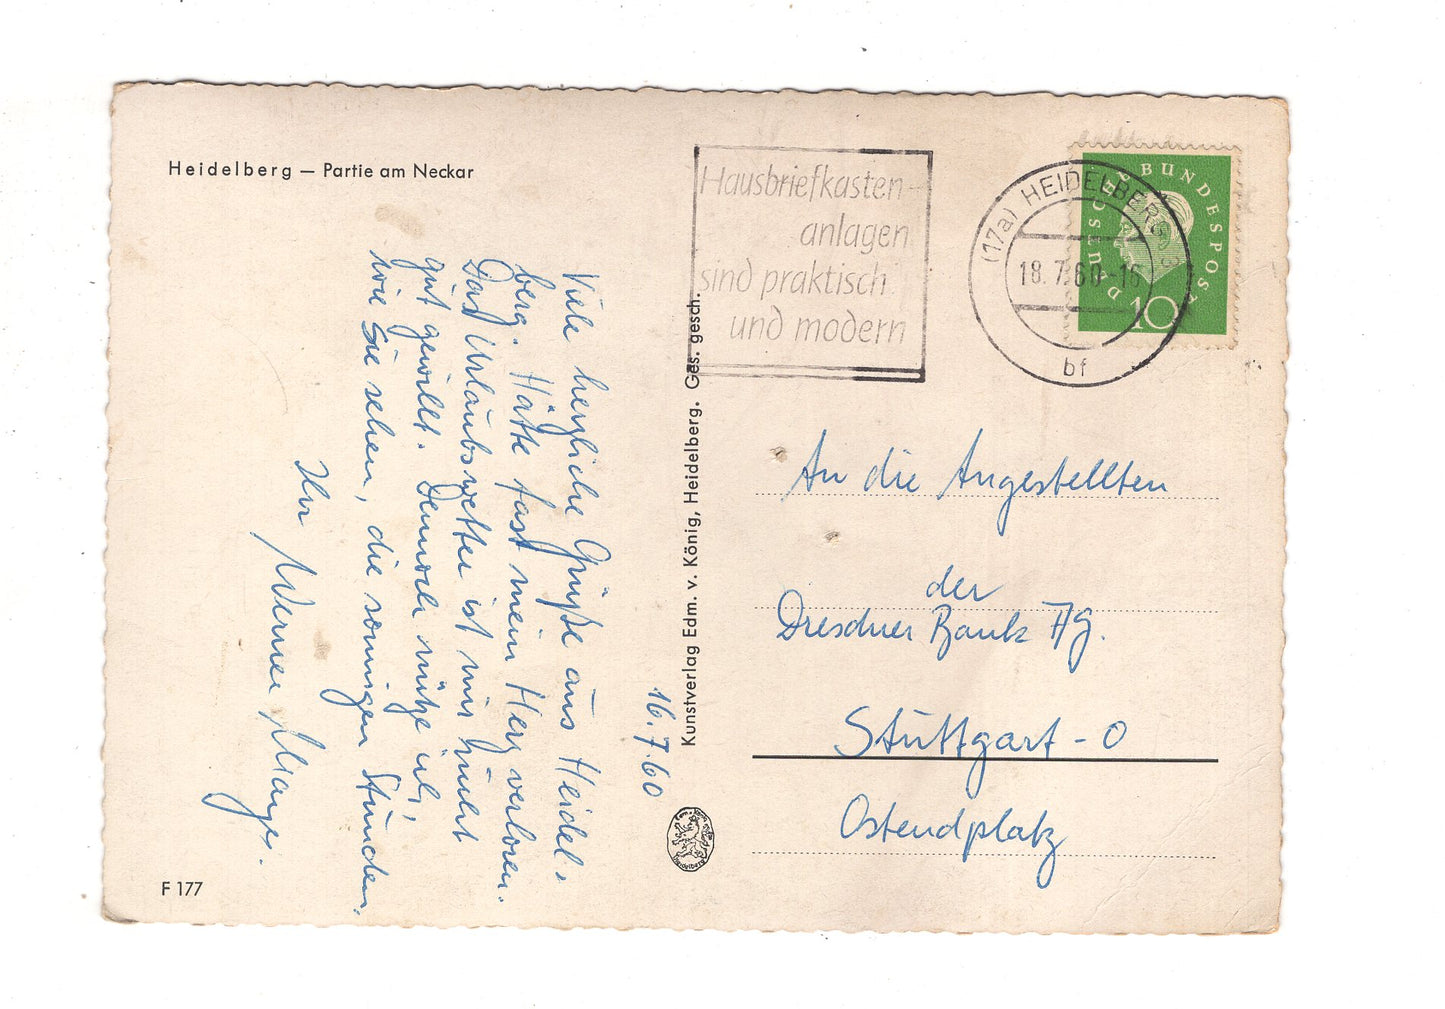 Heidelberg — Partie am Neckar
16.7.60
Viele herzliche Grüße aus Heidel-
berg. Hätte fast mein Herz verloren.
Das Urlaubswetter ist mir nicht
gut gewillt. Dennoch nütze ich,
wie Sie sehen, die sonnigen Stunden.
Ihr
Werner
F 177
Kunstverlag Edm. v. König, Heidelberg. Ges. gesch.
Hausbriefkasten-
anlagen
sind praktisch
und modern
(17a) HEIDELBERG 3
18.7.60-16
bf
DEUTSCHE BUNDESPOST
10
An die Angestellten
der
Dresdner Bank AG.
Stuttgart - O
Ostendplatz